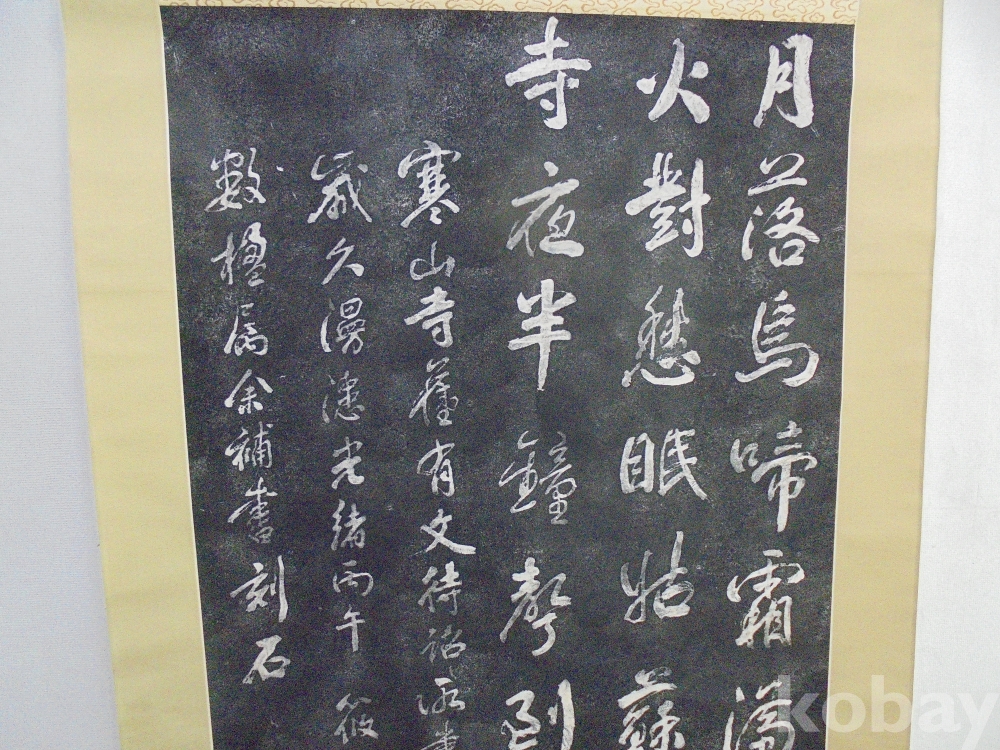 月落烏啼霜滿
火對愁眠姑蘇
寺夜半鐘聲到
寒山寺舊有文待詔所書
歲久漫漶光緒丙午筱
數楹屬余補書刻石
kobay